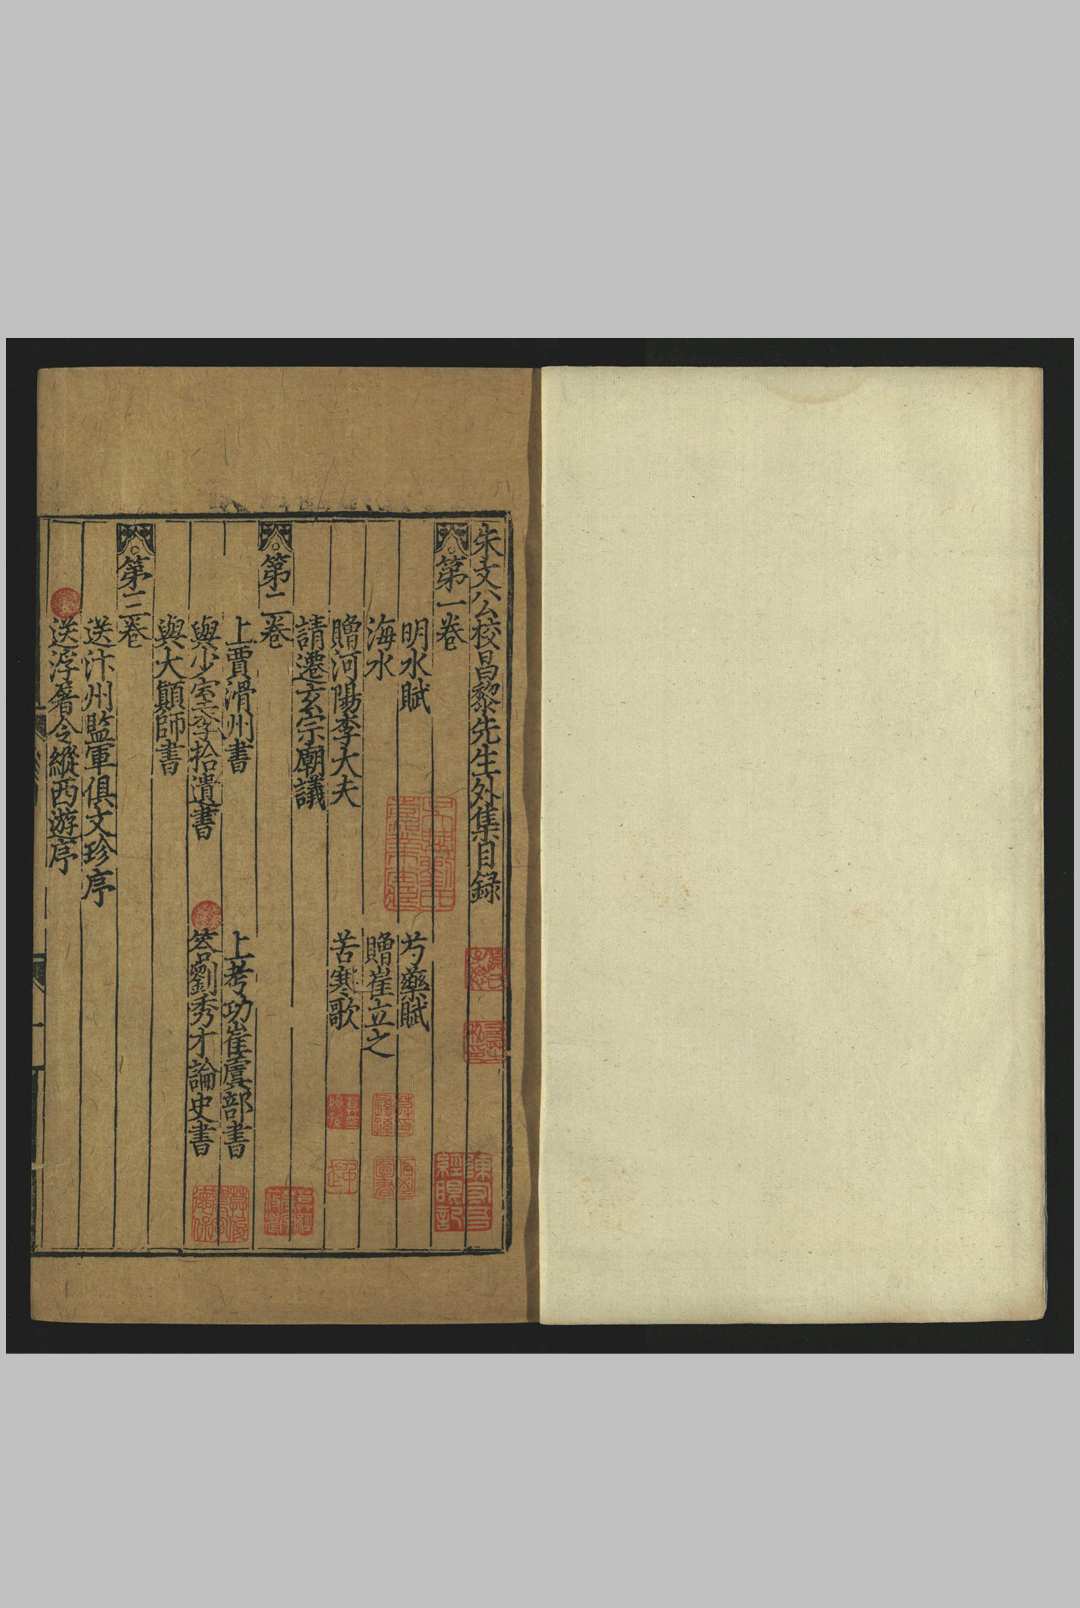 朱文公校昌黎先生外集目録
第一卷
明水賦　芍藥賦
海水　贈崔立之
贈河陽李大夫　苦寒歌
請遷玄宗廟議
第二卷
上賈滑州書　上考功崔虞部書
與少室李拾遺書　答劉秀才論史書
與大顛師書
第三卷
送汴州監軍俱文珍序
送浮屠令縱西游序